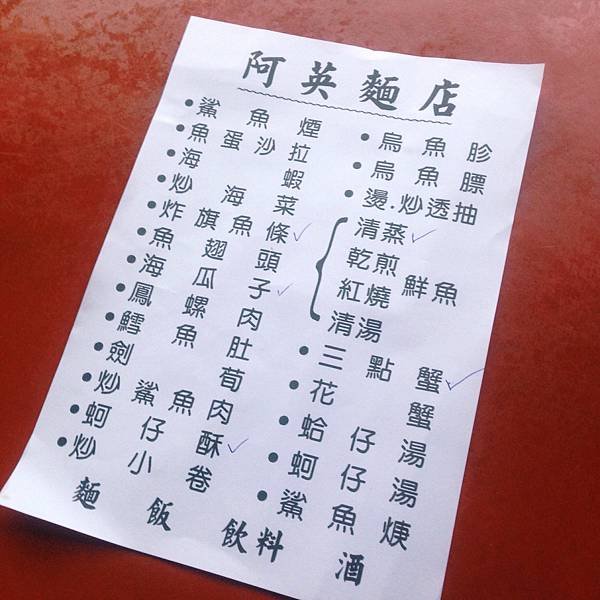 阿英麵店
• 鯊魚煙
• 魚蛋沙拉
• 海蝦
• 炒海菜
• 炸旗魚條
• 魚翅頭
• 海瓜子
• 鳳螺肉
• 鱈魚肚
• 劍荀
• 炒鯊魚肉
• 蚵仔酥
• 炒小卷
• 烏魚胗
• 烏魚膘
• 燙.炒透抽
清蒸
乾煎
紅燒
清湯
鮮魚
• 三點蟹
• 花蟹
• 蛤仔湯
• 蚵仔湯
• 鯊魚焿
麵 飯 飲料 酒